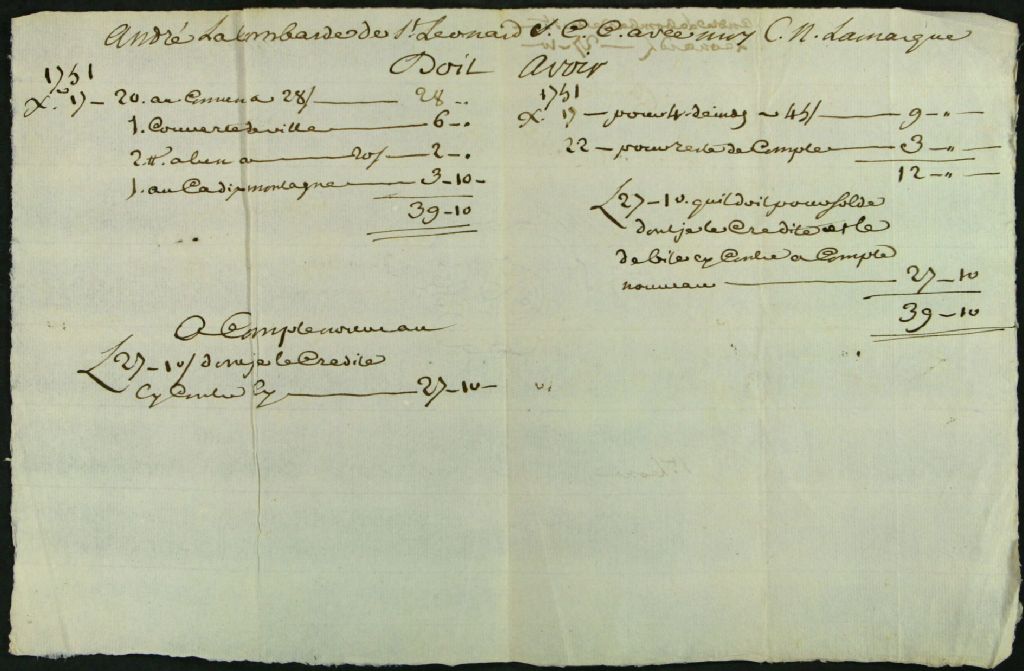 André Lalombarde de St. Leonard S. C. C. avec moy C. N. Lamarque
Doit
1751
Xe. 17 — 20. au Comen a 28/ — 28 - "
1. Couverte de ville — 6 - "
2 tt. a 20/ — 2 - "
1. au Cadis montagne — 3 - 10 -
39 - 10
A Compte nouveau
L 27 - 10/ dont je le Credite
Cy Contre Cy — 27 - 10 -
Avoir
1751
Xe. 17 — pour 4. — 45/ — 9 - " -
22 — pour reste de Compte — 3 - " -
12 - " -
L 27 - 10. qu'il doit pour solde
dont je le Credite et le
debite cy Contre a Compte
nouveau — 27 - 10
39 - 10